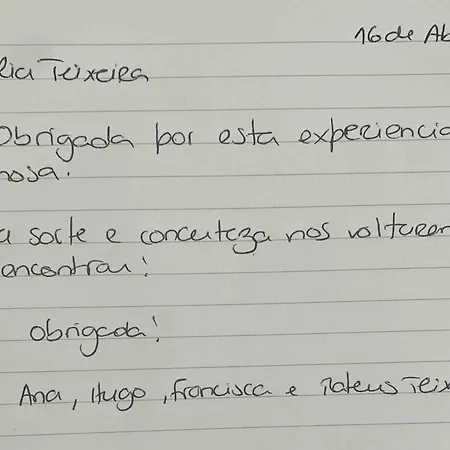 16 de Ab
lia Teixeira
Obrigada por esta experiencia
hosa.
a sorte e concerteza nos voltarem
encontrar!
Obrigada!
Ana, Hugo, Francisca e Mateus Teix